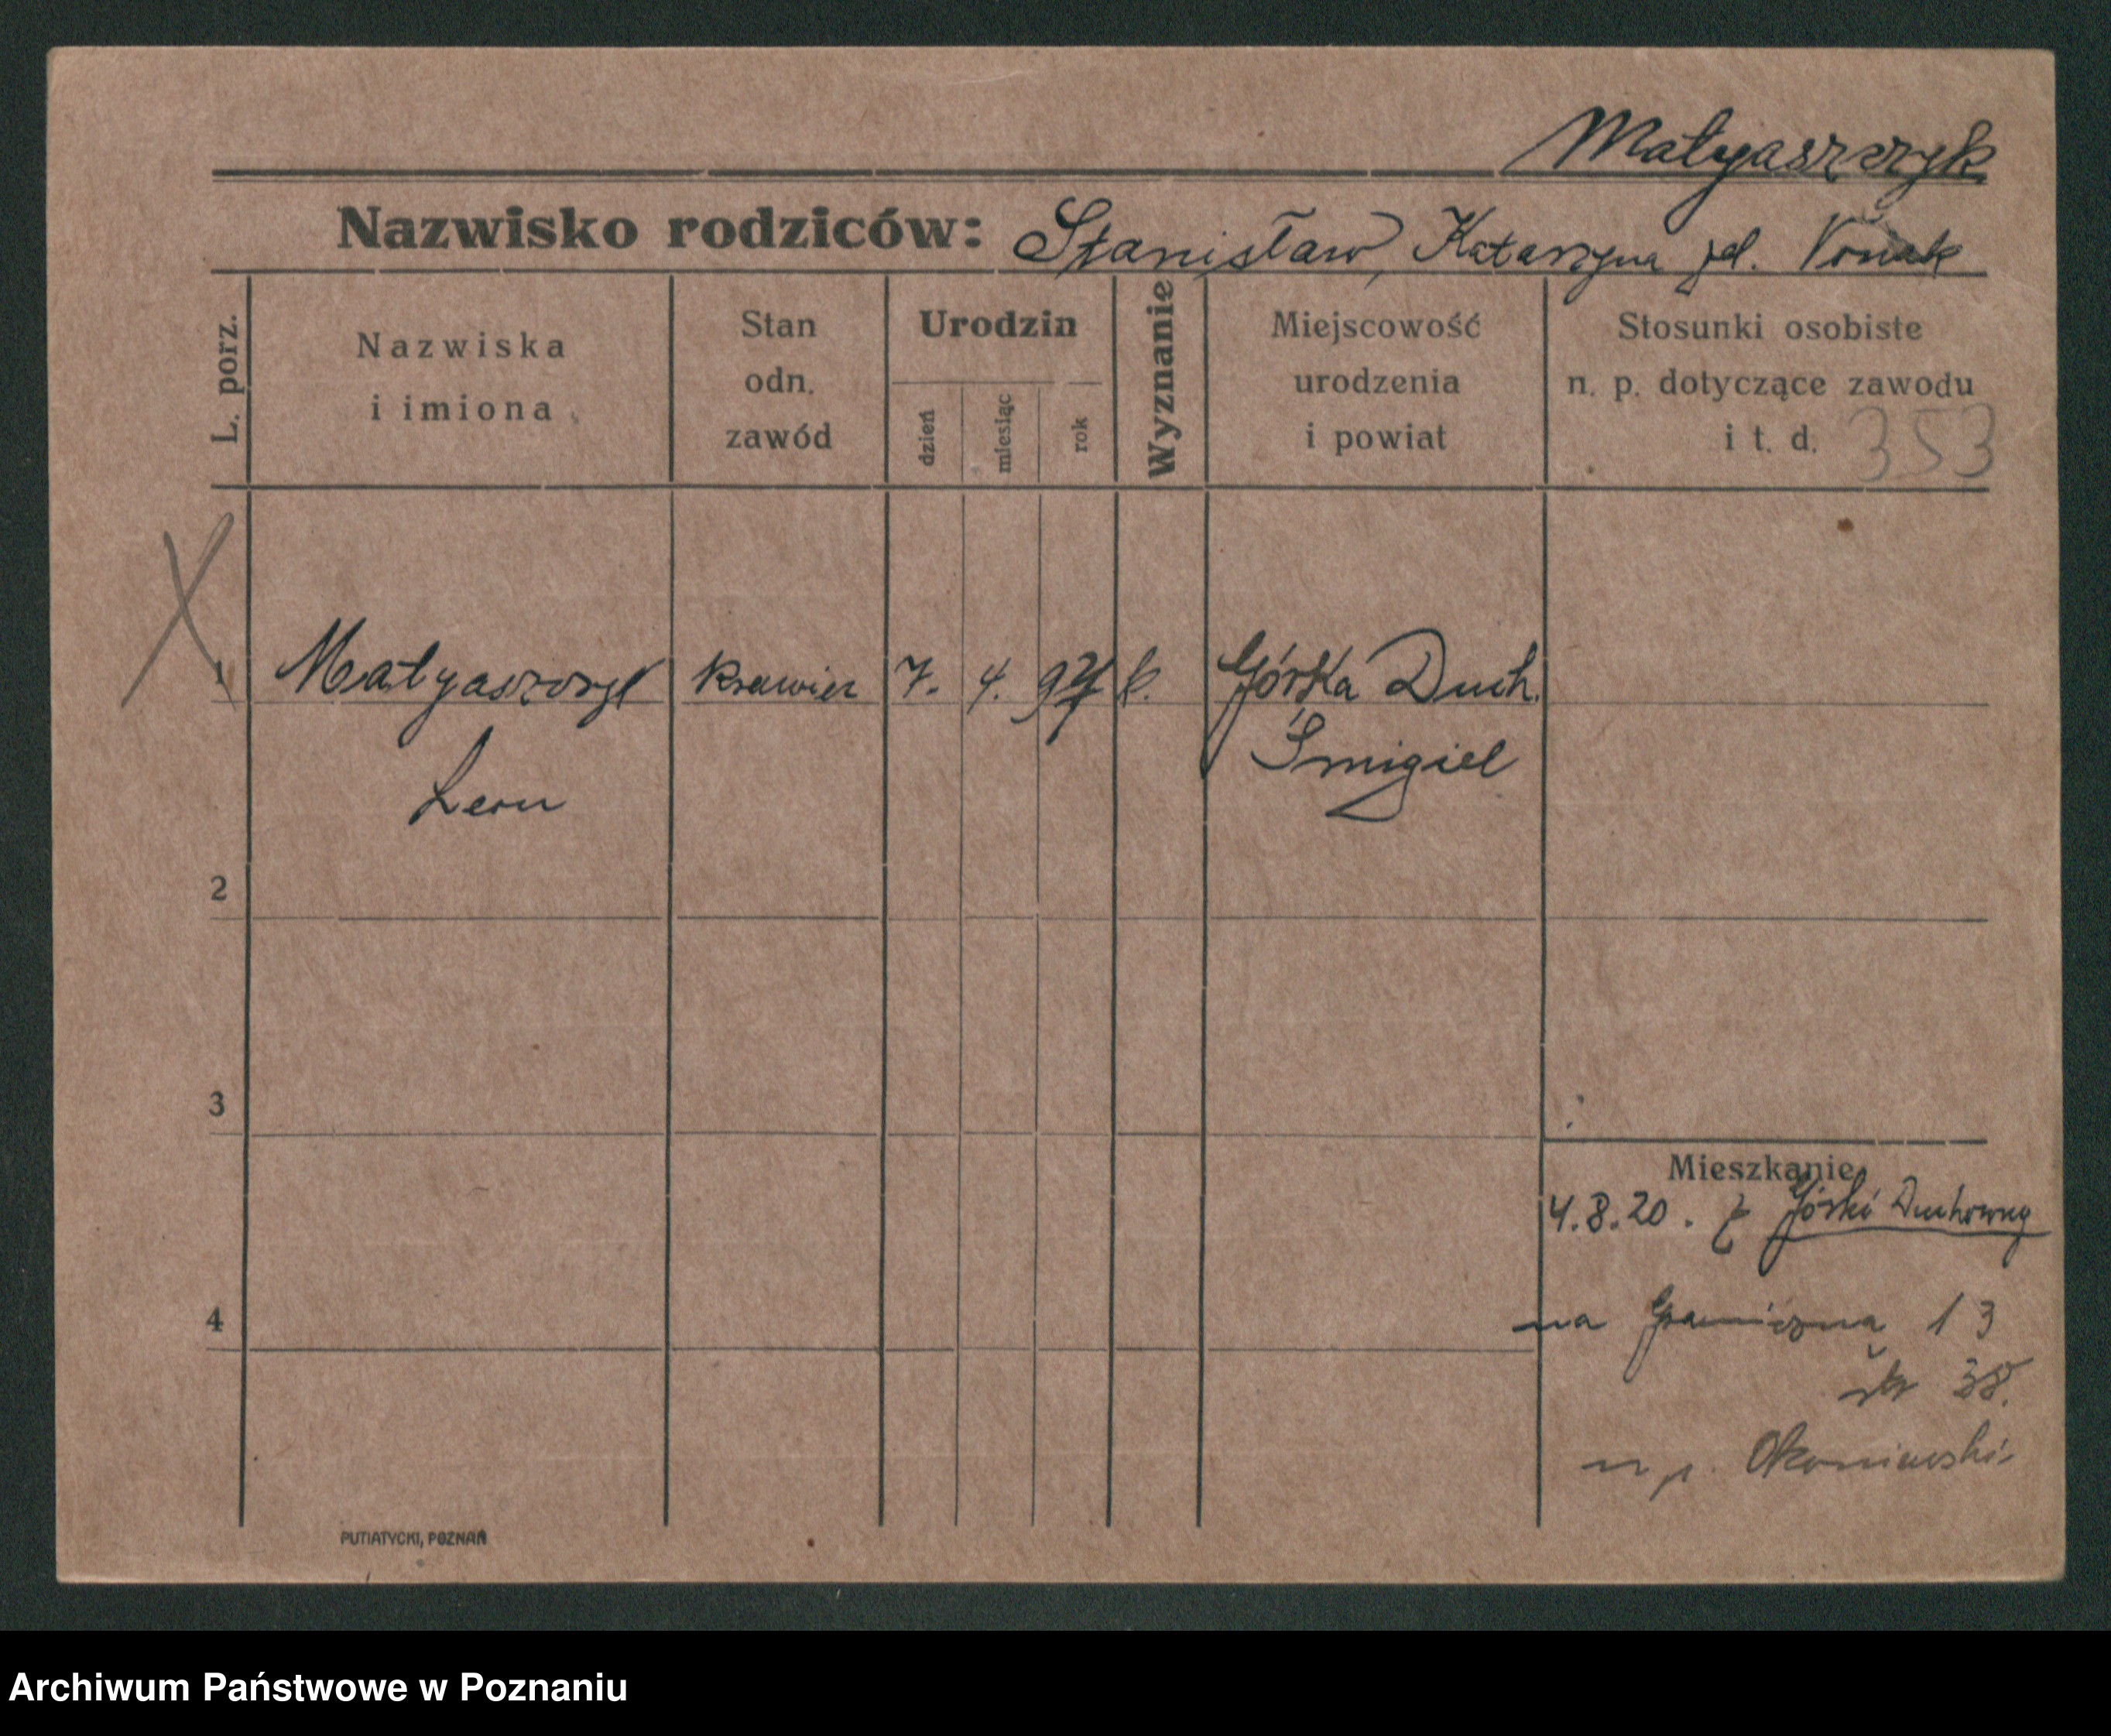 Matyaszczyk
Nazwisko rodziców: Stanisław, Katarzyna
L. porz.
Nazwiska
i imiona
Stan
odn.
zawód
Urodzin
dzień
miesiąc
rok
Wyznanie
Miejscowość
urodzenia
i powiat
Stosunki osobiste
n. p. dotyczące zawodu
i t. d.
353
1 Matyaszczyk krawiec 7. 4. k. Górka Duch.
Leon Śmigiel
2
3
4
Mieszkanie
4.8.20. z Górki Duchowny
na Graniczna 13
38.
u p. Okoniewski
PUTIATYCKI, POZNAŃ
Archiwum Państwowe w Poznaniu